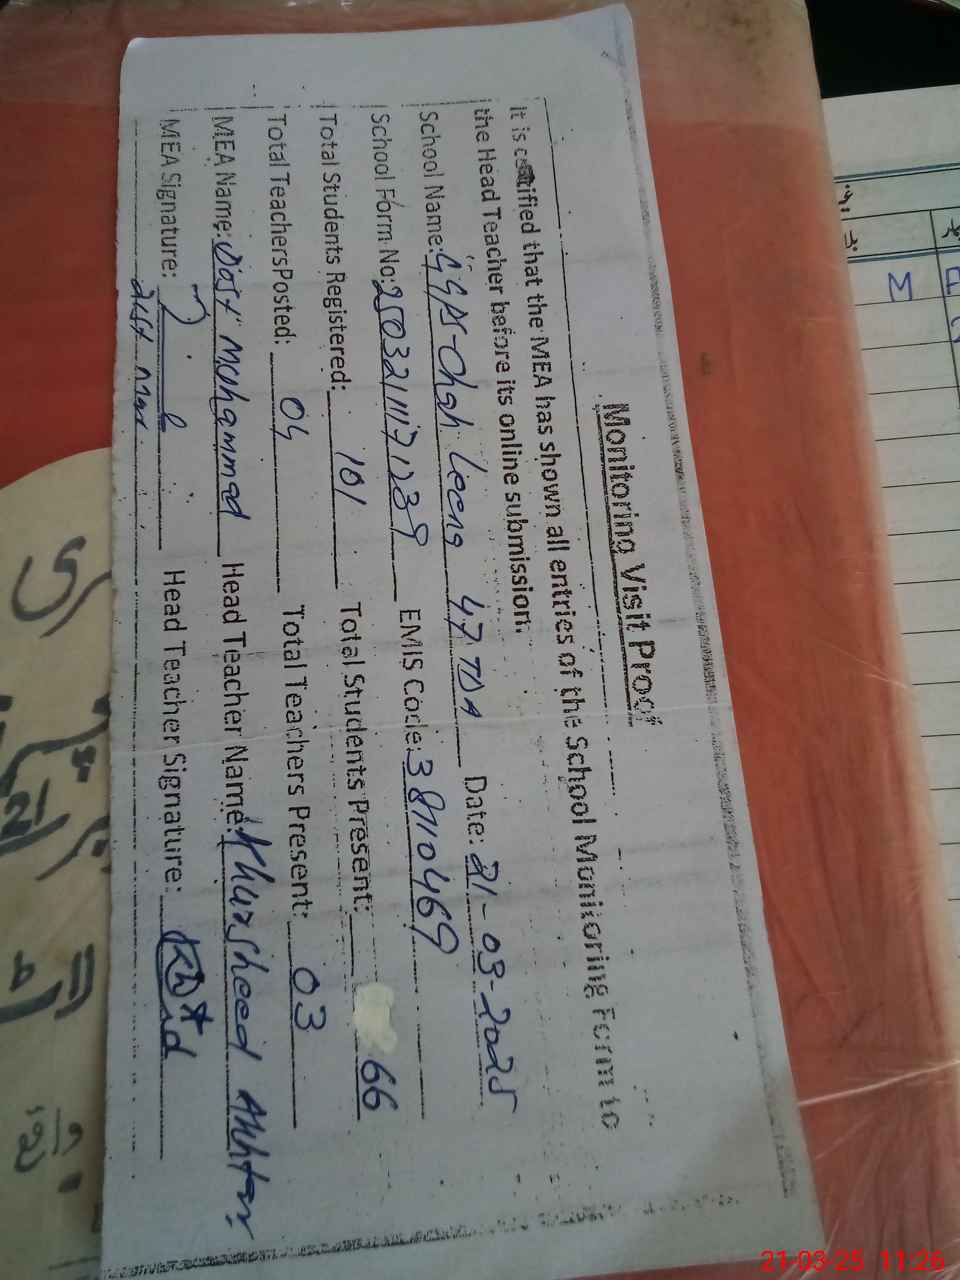 Monitoring Visit Proof
It is certified that the MEA has shown all entries of the School Monitoring Form to
the Head Teacher before its online submission.
School Name: GGPS-Chah Leeng 47 TDA Date: 21-03-2025
School Form No: 250321111717239 EMIS Code: 38110469
Total Students Registered: 101 Total Students Present: 66
Total Teachers Posted: 04 Total Teachers Present: 03
MEA Name: Dost Mohammad Head Teacher Name: Khursheed Akhtar
MEA Signature: Head Teacher Signature:
21-03-25 11:26